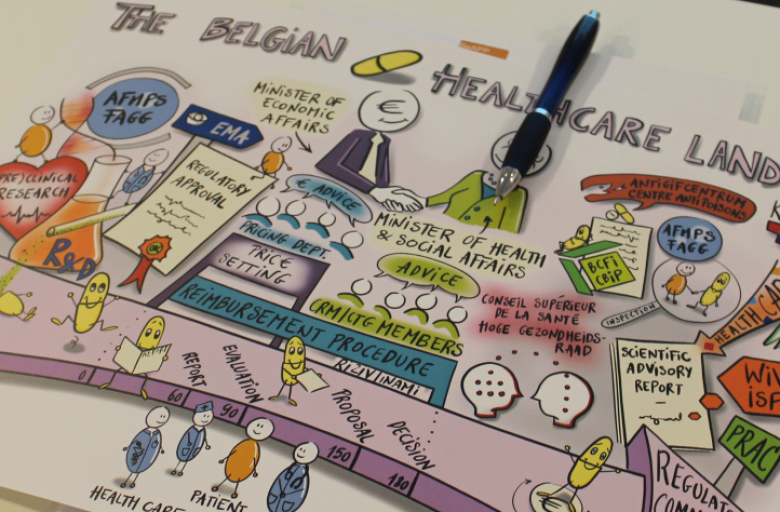 THE BELGIAN
HEALTHCARE LAND
AFMPS
FAGG
EMA
MINISTER OF
ECONOMIC
AFFAIRS
€
(PRE)CLINICAL
RESEARCH
REGULATORY
APPROVAL
R&D
€ ADVICE
PRICING DEPT.
PRICE
SETTING
MINISTER OF HEALTH
& SOCIAL AFFAIRS
ADVICE
CRM/CTG MEMBERS
REIMBURSEMENT PROCEDURE
RIZIV/INAMI
ANTIGIFCENTRUM
CENTRE ANTIPOISONS
BCFI
CBIP
AFMPS
FAGG
INSPECTION
CONSEIL SUPÉRIEUR
DE LA SANTÉ
HOGE GEZONDHEIDS-
RAAD
SCIENTIFIC
ADVISORY
REPORT
HEALTH CA
WIV
ISP
PRAC
0
60
REPORT
90
EVALUATION
150
PROPOSAL
180
DECISION
HEALTH CARE
PATIENT
REGULAT
COMM